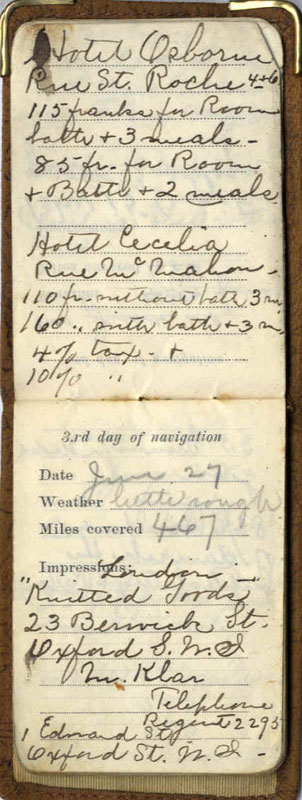 Hotel Osborne
Rue St. Roche 4+6
115 franks for Room
bath + 3 meals -
85 fr. for Room
+ Bath + 2 meals
Hotel Cecelia
Rue McMahon -
110 fr. without bath 3 m
160 " with bath + 3 m
4% tax - +
10% "
3.rd day of navigation
Date June 27
Weather little rough
Miles covered 467
Impressions: London
"Knitted Goods"
23 Berwick St.
Oxford S. W. I
M. Klar
Telephone
Regent 2295
1 Edward St
Oxford St. W. I -